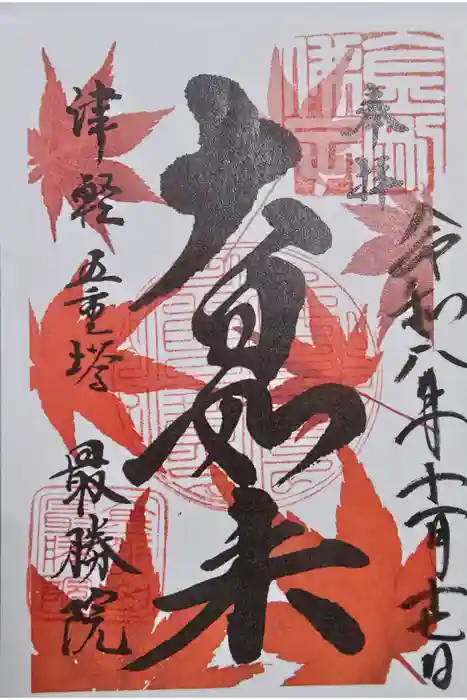 奉拝
令和八年十一月十七日
大日如来
津軽 五重塔 最勝院